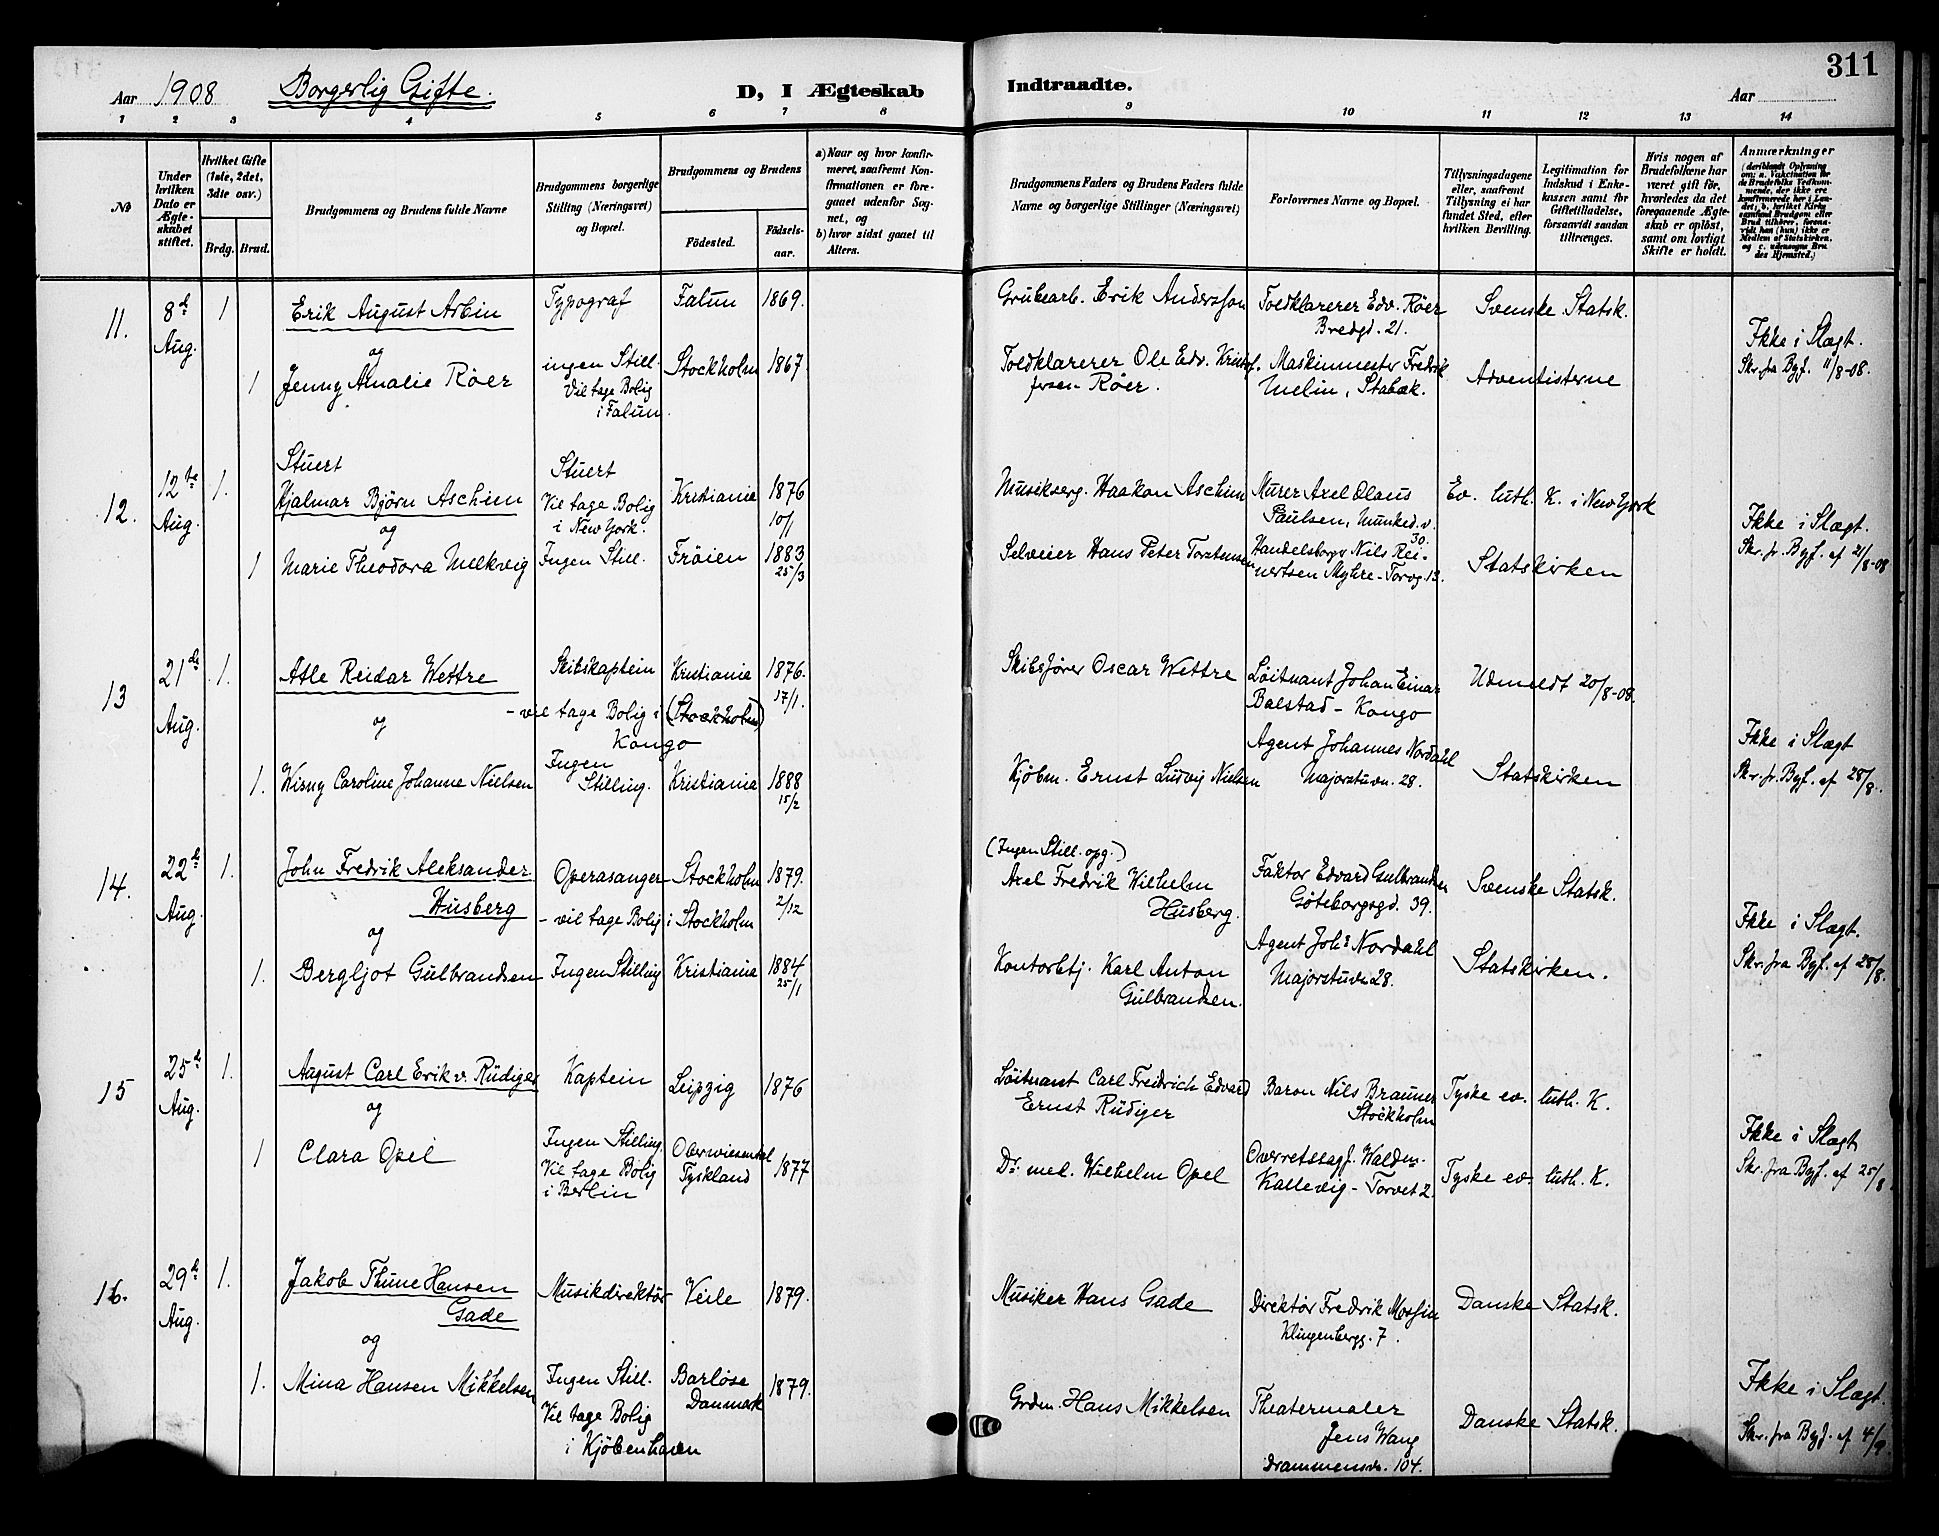 311
Aar 1908 Borgerlig Gifte. D, I Ægteskab Indtraadte. Aar
1 2 3 4 5 6 7 8 9 10 11 12 13 14
№
Under hvilken Dato er Ægteskabet stiftet.
Hvilket Gifte (1ste, 2det, 3die osv.)
Brdg. Brud.
Brudgommens og Brudens fulde Navne
Brudgommens borgerlige Stilling (Næringsvei) og Bopæl.
Brudgommens og Brudens
Fødested. Fødselsaar.
a) Naar og hvor konfirmeret, saafremt Konfirmationen er foregaaet udenfor Sognet, og
b) hvor sidst gaaet til Alters.
Brudgommens Faders og Brudens Faders fulde Navne og borgerlige Stillinger (Næringsvei)
Forlovernes Navne og Bopæl.
Tillysningsdagene eller, saafremt Tillysning ei har fundet Sted, efter hvilken Bevilling.
Legitimation for Indskud i Enkekassen samt for Giftetilladelse, forsaavidt saadan tiltrænges.
Hvis nogen af Brudefolkene har været gift før, hvorledes da det foregaaende Ægteskab er opløst, samt om lovligt Skifte er holdt.
Anmærkninger
(deriblandt Oplysning om: a. Vakcination for de Brudefolks Vedkommende, der ikke ere konfirmerede her i Landet; b. hvilket Kirkesamfund Brudgom eller Brud tilhører, forsaavidt han (hun) ikke er Medlem af Statskirken, og c. udensogns Brudes Hjemsted.)
11. 8d Aug. 1
Erik August Arbin
og
1 Jenny Amalie Röer
Typograf
Falun 1869.
ingen Still.
Vil tage Bolig
i Falun.
Stockholm 1867
Grubearb. Erik Andersson
Toldklarerer Edv. Röer
Bredgd. 21.
Svenske Statsk.
Toldklarerer Ole Edv. Kristof-
fersen Röer.
Maskinmester Fredrik
Melin, Stabæk.
Adventisterne
Ikke i Slægt.
Skr. fra Byf. 11/8-08.
12. 12te Aug. 1.
Stuert
Hjalmar Bjørn Aschim
og
1 Marie Theodora Melkvig
Stuert
Vil tage Bolig
i New York.
Kristiania 1876
10/1
Ingen Still.
Frøien 1883
25/3
Musikserg. Haakon Aschim
Murer Axel Olaus
Paulsen, Munked. v.
30.
Ev. luth. K. i New York
Selveier Hans Peter Torstensen
Handelsborgr Nils Rei-
nertsen Myhre - Torvg. 13.
Statskirken
Ikke i Slægt.
Skr. fr. Byf. af 21/8-08
13 21de Aug. 1.
Atle Reidar Wettre
og
1. Wisny Caroline Johanne Nielsen
Skibskaptein
- vil tage Bolig i
Kongo
Kristiania 1876.
17/1.
(Stockholm)
Ingen
Stilling.
Kristiania 1888
15/2
Skibsfører Oscar Wettre
Löitnant Johan Einar
Balstad - Kongo
Udmeldt 20/8-08.
Kjöbm. Ernst Ludvig Nielsen
Agent Johannes Nordahl
Majorstuvn. 28.
Statskirken
Ikke i Slægt
Skr. fr. Byf. af 28/8.
14. 22d Aug. 1.
John Fredrik Aleksander
Husberg
og
1. Bergljot Gulbrandsen
Operasanger
- vil tage Bolig i Stockholm
Stockholm 1879.
2/12
Ingen Stilling
Kristiania 1884
25/1
(Ingen Still. opg.)
Axel Fredrik Wilhelm
Husberg.
Faktor Edvard Gulbrandsen
Göteborgsgd. 39.
Svenske Statsk.
Kontorbetj. Karl Anton
Gulbrandsen.
Agent Johs Nordahl
Majorstuvn 28.
Statskirken.
Ikke i Slægt.
Skr. fra Byf. af 28/8.
15 25d Aug. 1.
August Carl Erik v. Rüdiger
og
1 Clara Opel
Kaptein
Leipzig 1876
Ingen Stilling.
Vil tage Bolig
i Berlin
Oberwiesental
Tyskland 1877
Löitnant Carl Freidrich Edvard
Ernst Rüdiger
Baron Nils Brauner
Stockholm
Tyske ev. luth. K.
Dr. med. Wilhelm Opel
Overretssagf. Waldm.
Kallevig - Torvet 2.
Tyske ev. luth. K.
Ikke i Slægt
Skr. fra Byf. af 25/8
16. 29d Aug. 1.
Jakob Thune Hansen
Gade
og
1. Mina Hansen Mikkelsen
Musikdirektör
Veile 1879.
Ingen Still.
Vil tage Bolig
i Kjöbenhavn
Barløse
Danmark 1879.
Musiker Hans Gade
Direktör Fredrik Mossin
Klingenbergg. 7.
Danske Statsk.
Grdm. Hans Mikkelsen
Theatermaler
Jens Wang
Drammensv. 104.
Danske Statsk.
Ikke i Slægt.
Skr. fra Byf. af 4/9